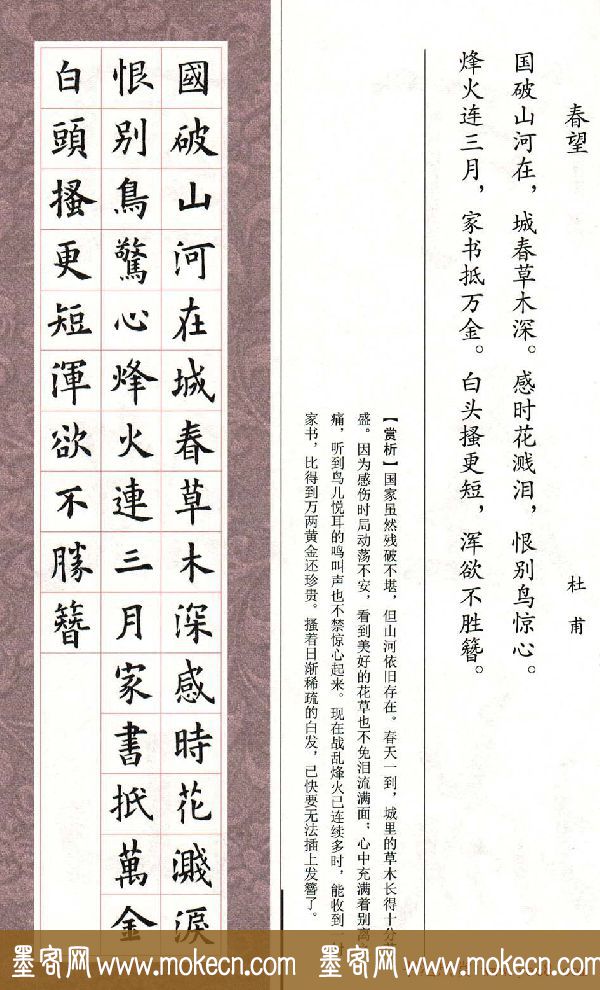 春望
杜甫
国破山河在，城春草木深。感时花溅泪，恨别鸟惊心。
烽火连三月，家书抵万金。白头搔更短，浑欲不胜簪。
【赏析】国家虽然残破不堪，但山河依旧存在。春天一到，城里的草木长得十分
盛。因为感伤时局动荡不安，看到美好的花草也不免泪流满面，心中充满着别离
痛，听到鸟儿悦耳的鸣叫声也不禁惊心起来。现在战乱烽火已连续多时，能收到
家书，比得到万两黄金还珍贵。搔着日渐稀疏的白发，已快要无法插上发簪了。
國破山河在城春草木深感時花濺淚
恨别鳥驚心烽火連三月家書抵萬金
白頭搔更短渾欲不勝簪
墨客网 www.mokecn.com 墨客网 www.mokecn.com